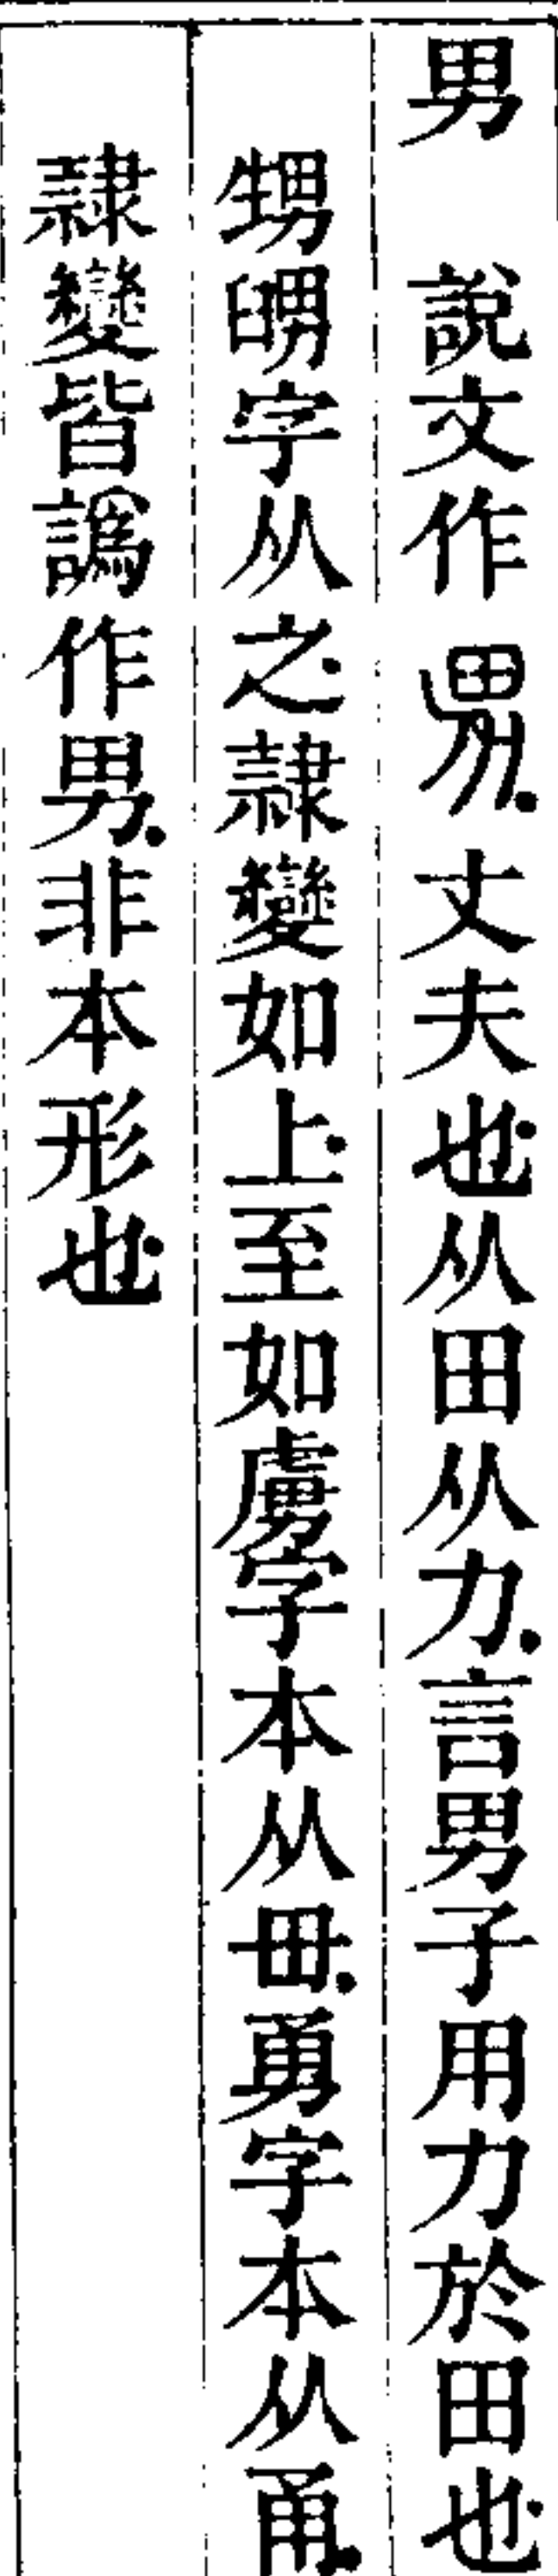 男 說文作𤱶丈夫也从田从力言男子用力於田也
甥舅字从之隸變如上至如虜字本从毌勇字本从甬
隸變皆譌作男非本形也